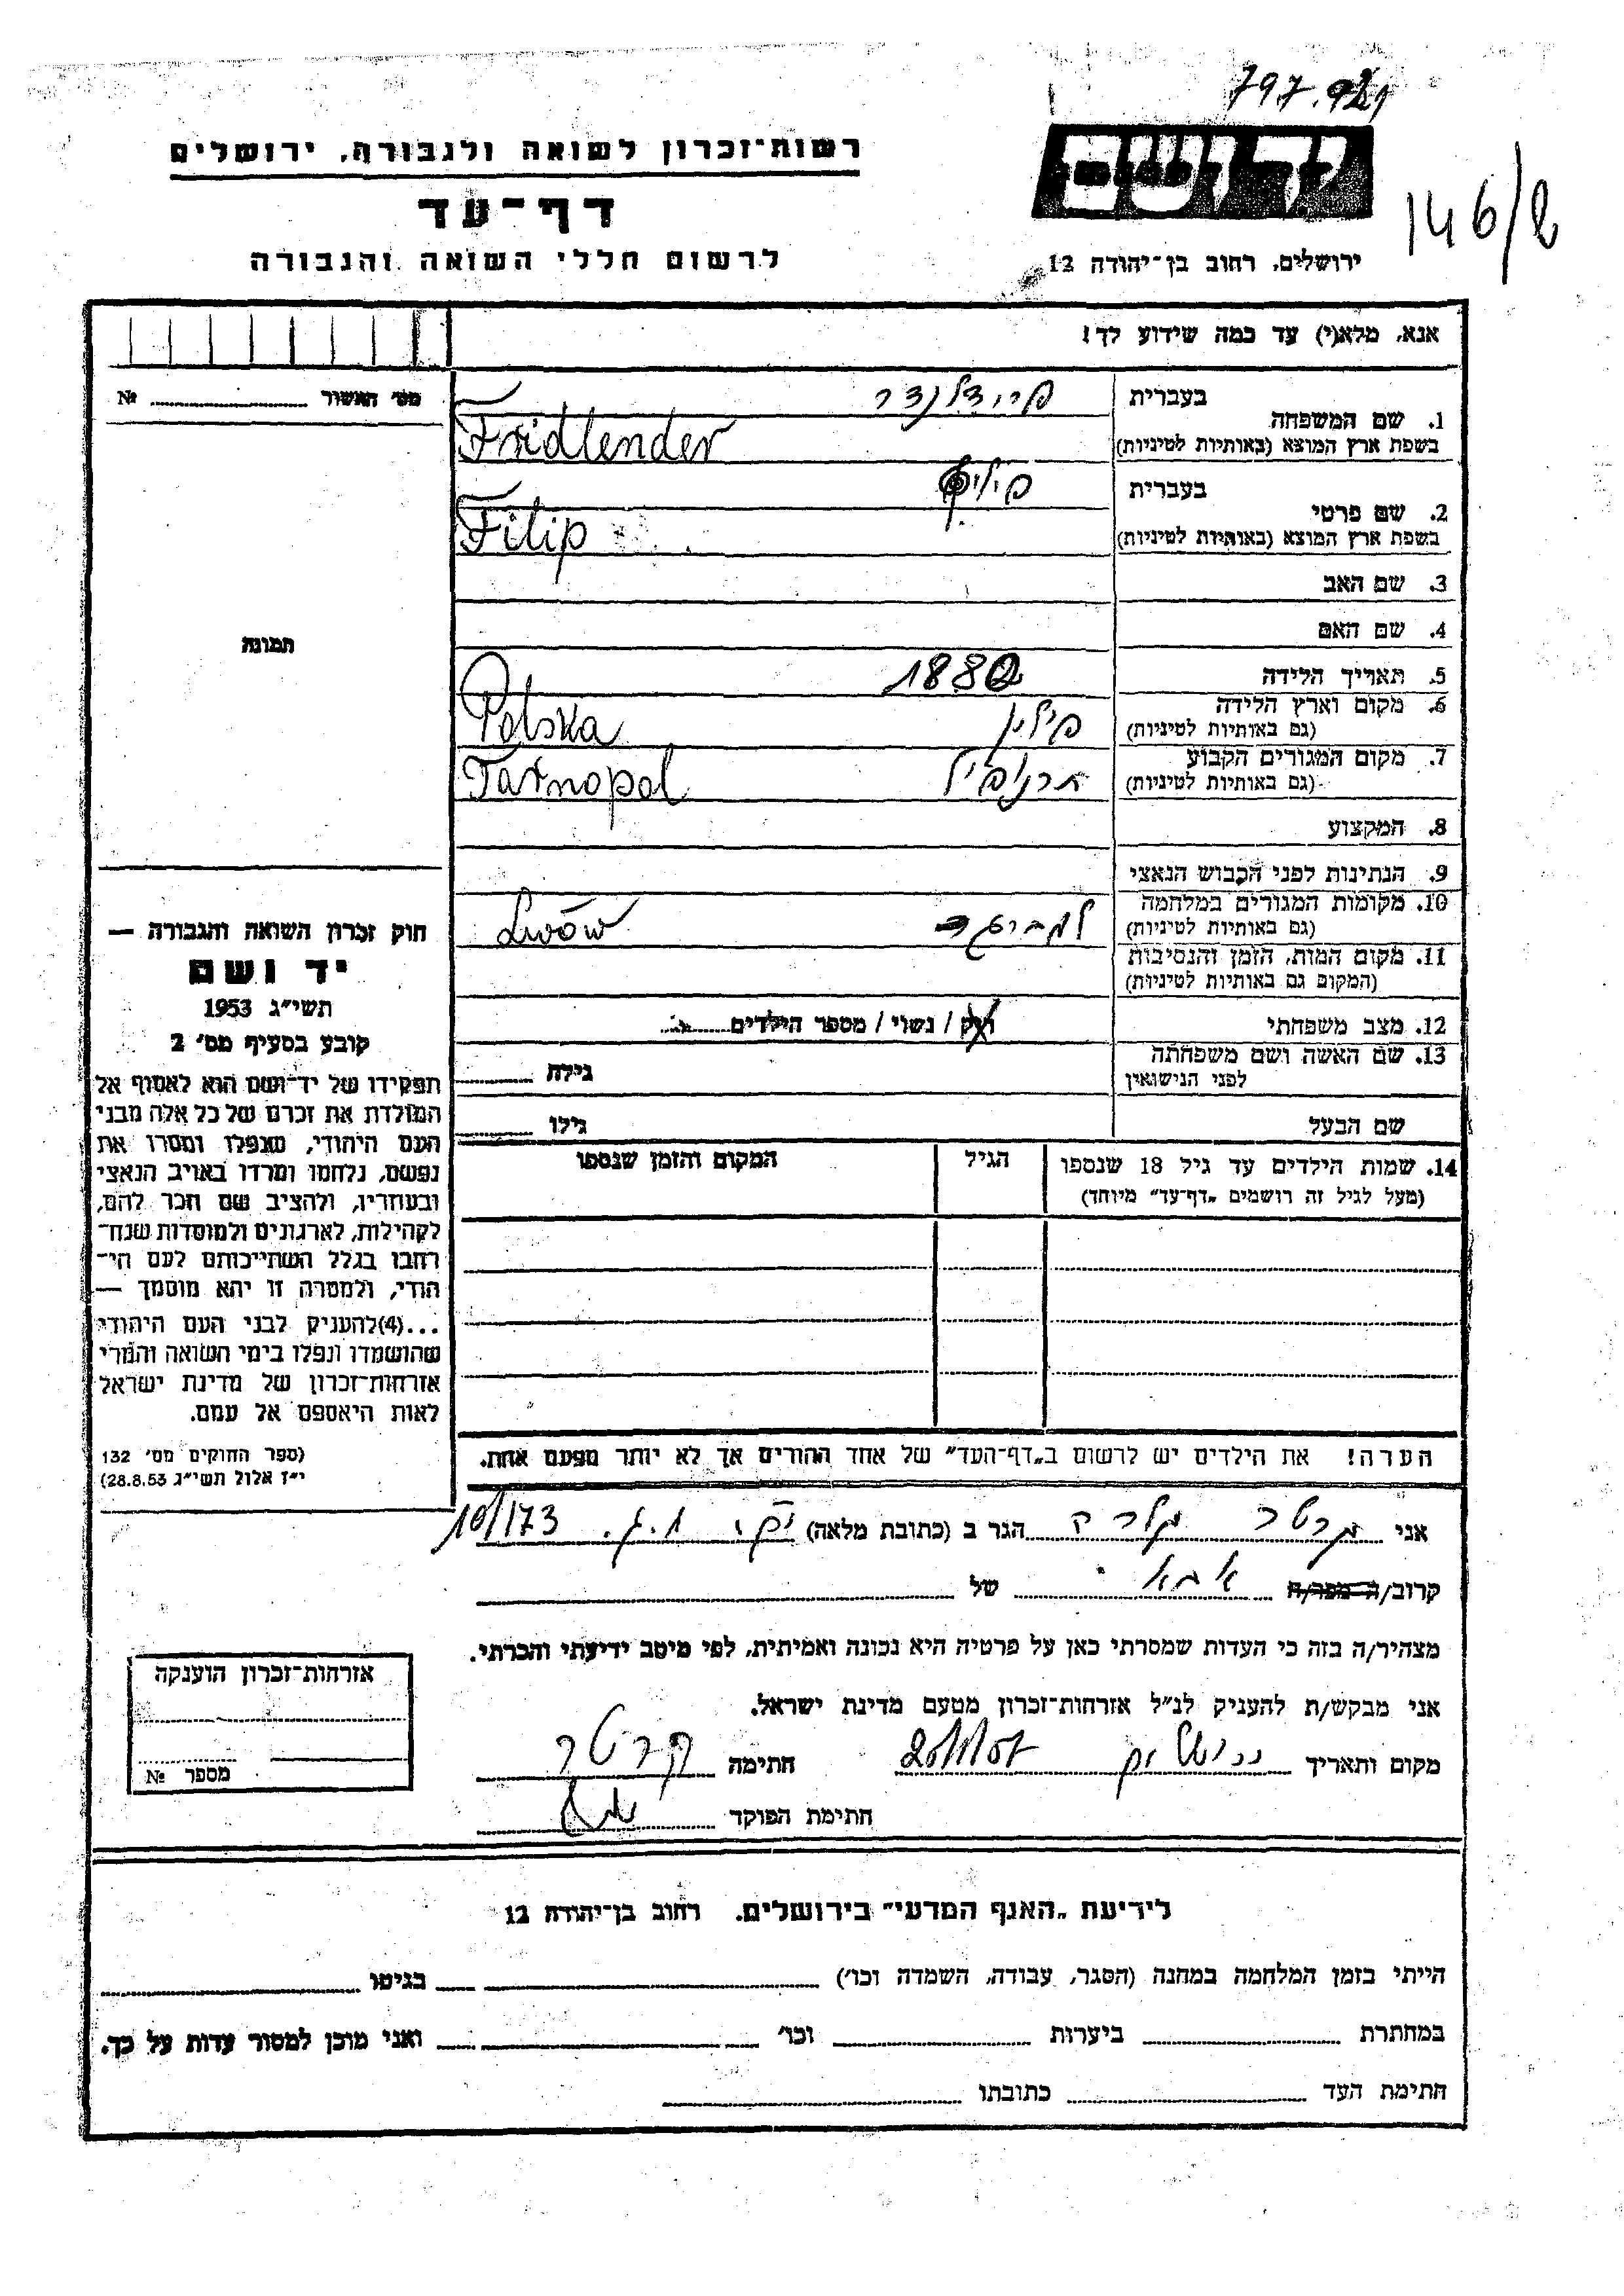 797.921
146/8
רשות־זכרון לשואה ולגבורה, ירושלים
דף־עד
לרשום חללי השואה והגבורה
יד ושם
ירושלים, רחוב בן־יהודה 12
אנא, מלא(י) עד כמה שידוע לך!
מס' האשור № 
1. שם המשפחה בעברית פרידלנדר
בשפת ארץ המוצא (באותיות לטיניות) Fridlender
2. שם פרטי בעברית פיליפ
בשפת ארץ המוצא (באותיות לטיניות) Filip
3. שם האב
4. שם האם
תמונה
5. תאריך הלידה 1880
6. מקום וארץ הלידה פולין
(גם באותיות לטיניות) Polska
7. מקום המגורים הקבוע טרנופול
(גם באותיות לטיניות) Tarnopol
8. המקצוע
9. הנתינות לפני הכבוש הנאצי
10. מקומות המגורים במלחמה למברג
(גם באותיות לטיניות) Lwów
11. מקום המות, הזמן והנסיבות
(המקום גם באותיות לטיניות)
12. מצב משפחתי רוק / נשוי / מספר הילדים
13. שם האשה ושם משפחתה
לפני הנישואין גילה
שם הבעל גילו
14. שמות הילדים עד גיל 18 שנספו הגיל המקום והזמן שנספו
(מעל לגיל זה רושמים „דף־עד" מיוחד)
חוק זכרון השואה והגבורה —
יד ושם
תשי"ג 1953
קובע בסעיף מס' 2
תפקידו של יד־ושם הוא לאסוף אל
המולדת את זכרם של כל אלה מבני
העם היהודי, שנפלו ומסרו את
נפשם, נלחמו ומרדו באויב הנאצי
ובעוזריו, ולהציב שם וזכר להם,
לקהילות, לארגונים ולמוסדות שנח־
רבו בגלל השתייכותם לעם הי־
הודי, ולמטרה זו יהא מוסמך —
...(4) להעניק לבני העם היהודי
שהושמדו ונפלו בימי השואה והמרי
אזרחות־זכרון של מדינת ישראל
לאות היאספם אל עמם.
(ספר החוקים מס' 132
י"ז אלול תשי"ג 28.8.53)
הערה! את הילדים יש לרשום ב„דף־העד" של אחד ההורים אך לא יותר מפעם אחת.
אני הגר ב (כתובת מלאה) 10/173
קרוב/ה מכר/ה אבא של
מצהיר/ה בזה כי העדות שמסרתי כאן על פרטיה היא נכונה ואמיתית, לפי מיטב ידיעתי והכרתי.
אני מבקש/ת להעניק לנ"ל אזרחות־זכרון מטעם מדינת ישראל.
מקום ותאריך ירושלים חתימה
חתימת הפוקד
אזרחות־זכרון הוענקה
מספר №
לידיעת „האגף המדעי" בירושלים, רחוב בן־יהודה 12
הייתי בזמן המלחמה במחנה (הסגר, עבודה, השמדה וכו') בגיטו
במחתרת ביערות וכו' ואני מוכן למסור עדות על כך.
חתימת העד כתובתו